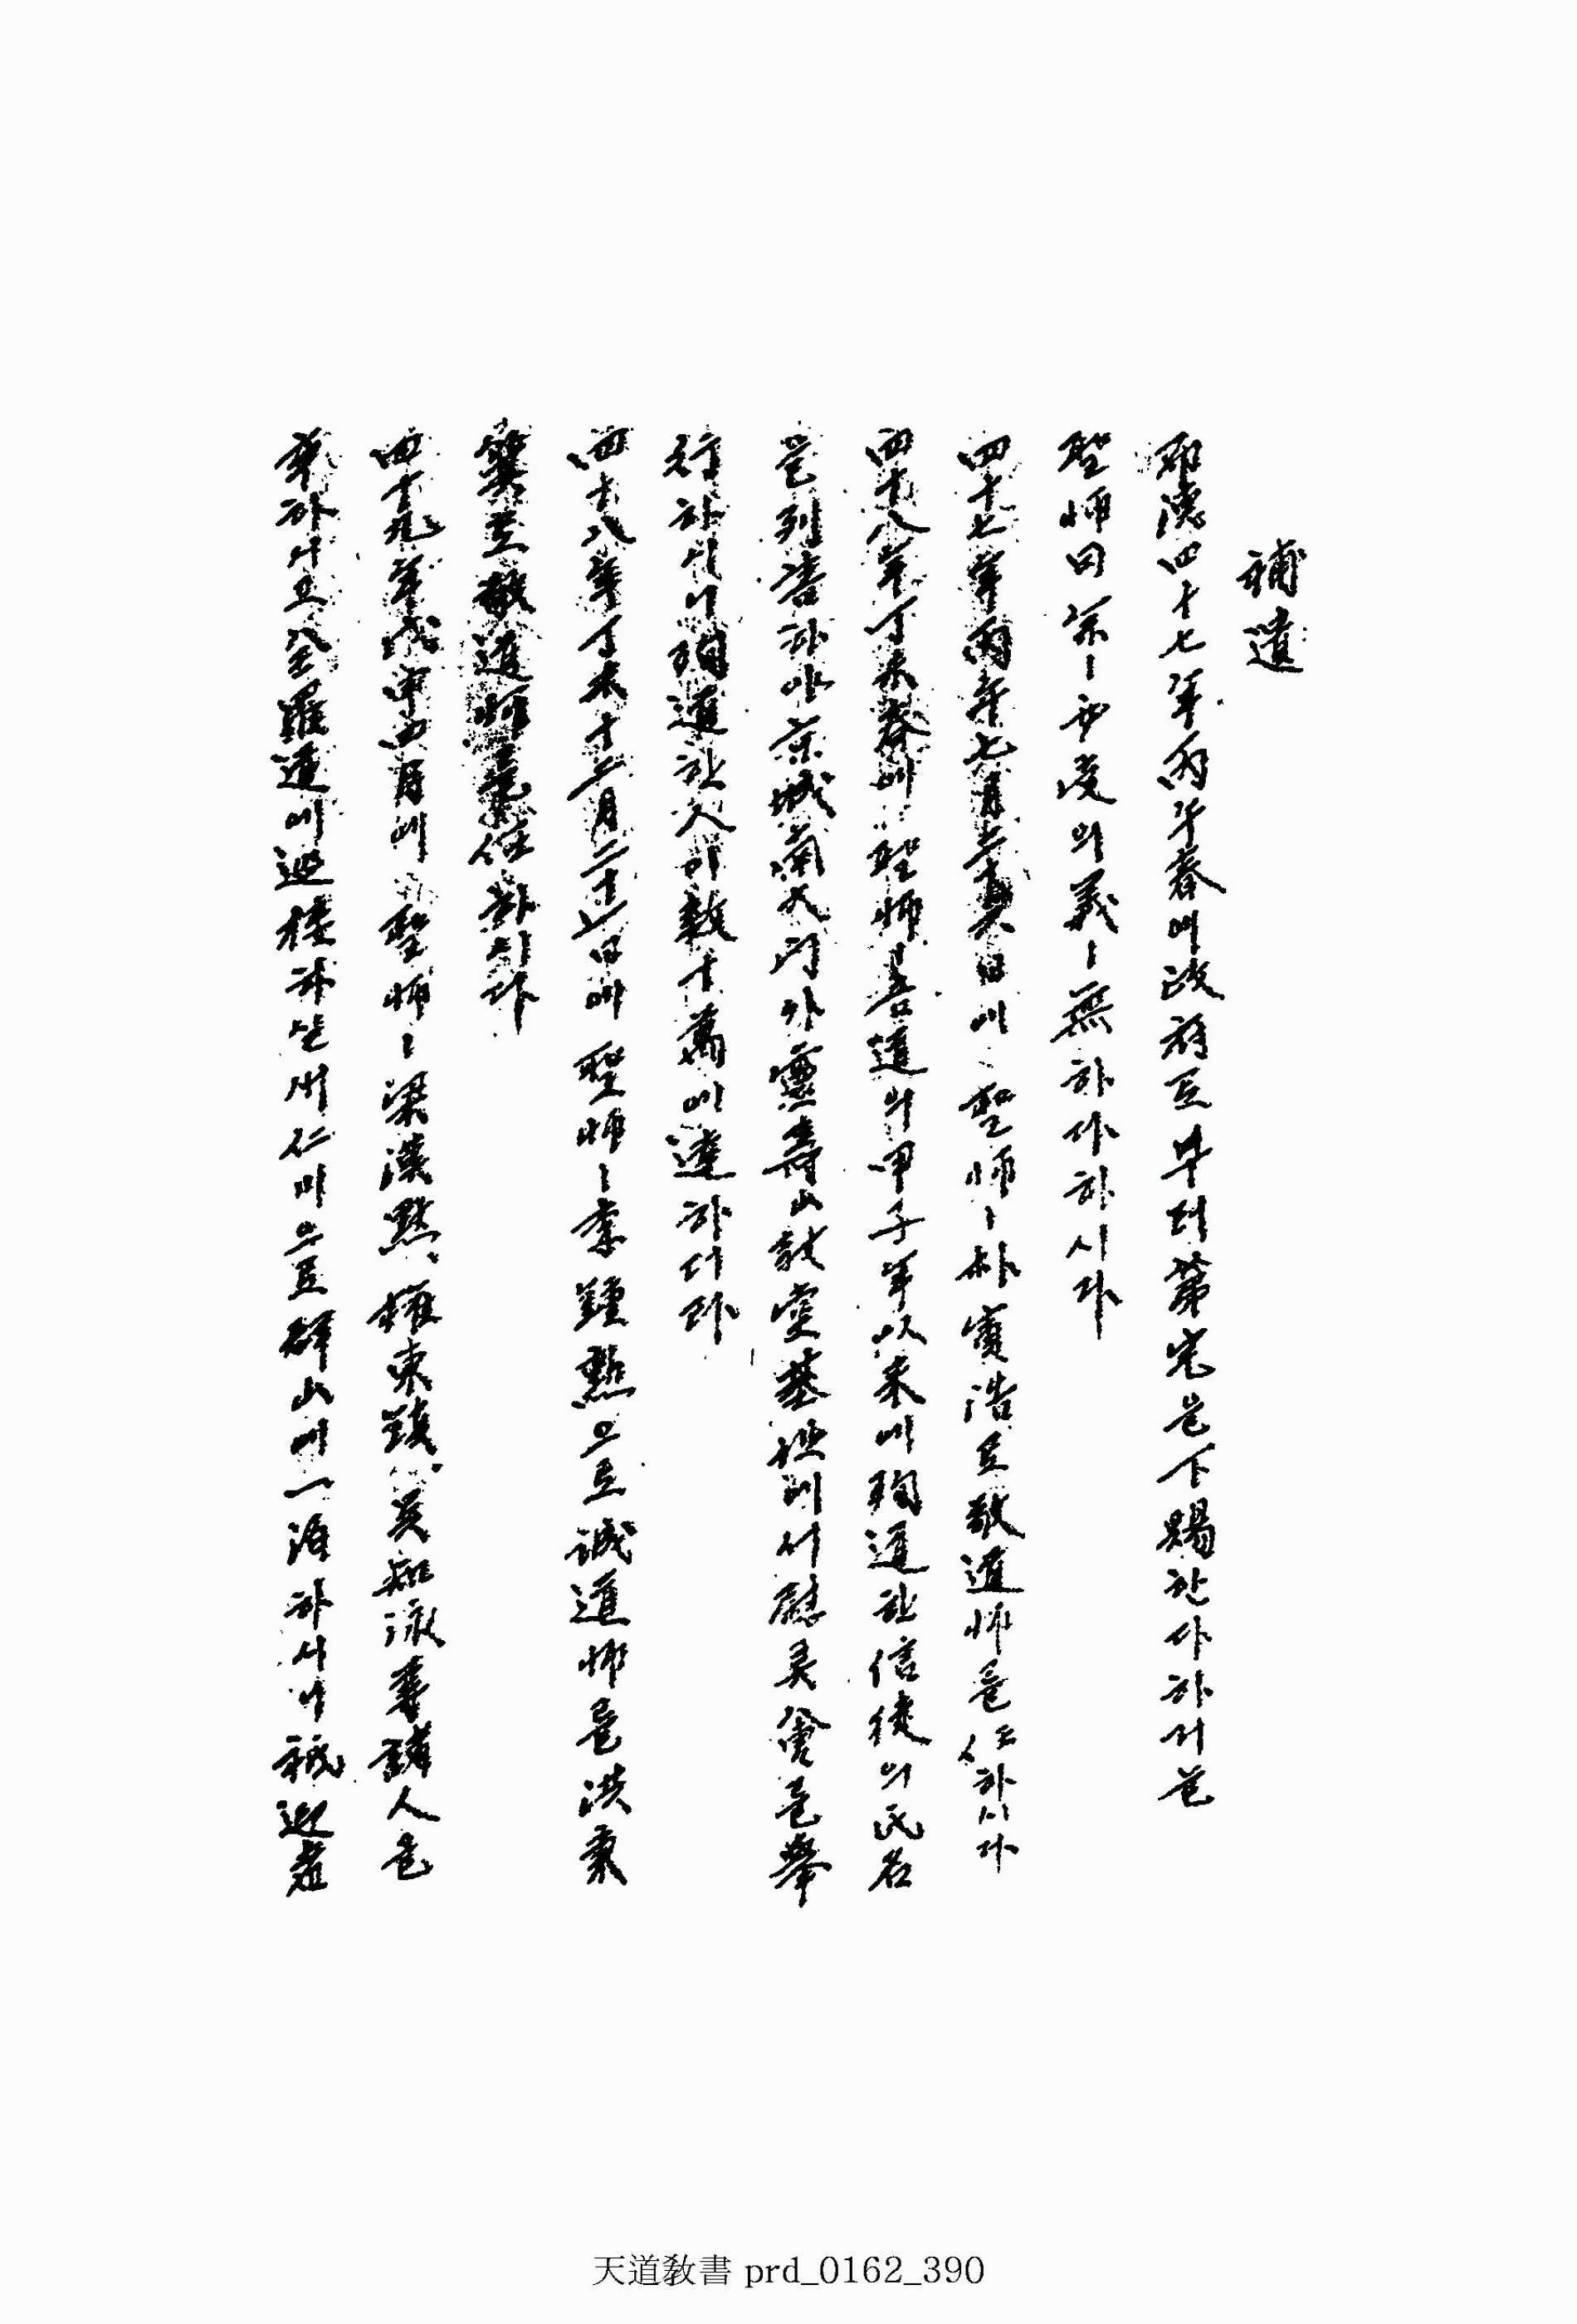 補遺
布德四十七年丙午春에 政府로부터 第宅을 下賜한다 하거늘
聖師曰 余ㅣ 受의 義ㅣ 無하다 하시다
四十七年丙午七月 日에 聖師ㅣ 朴寅浩로 敬道師를 任하시다
四十八年丁未春에 聖師 吾道의 甲子年以來에 殉道한 信徒의 氏名
을 列書하야 京城南大門外 靈壽山 說堂基址에서 慰灵會를 擧
行하시니 殉道한 人이 數十萬에 達하더라
四十八年丁未十二月二十 日에 聖師ㅣ 李鍾勳으로 誠道師를 洪秉
箕로 敬道師를 任하시다
四十九年戊申四月에 聖師ㅣ 梁漢默、權東鎭、吳知泳 等諸人을
率하시고 全羅道에 巡 하실새 仁川으로 群山에 一泊하시니 祗迎者